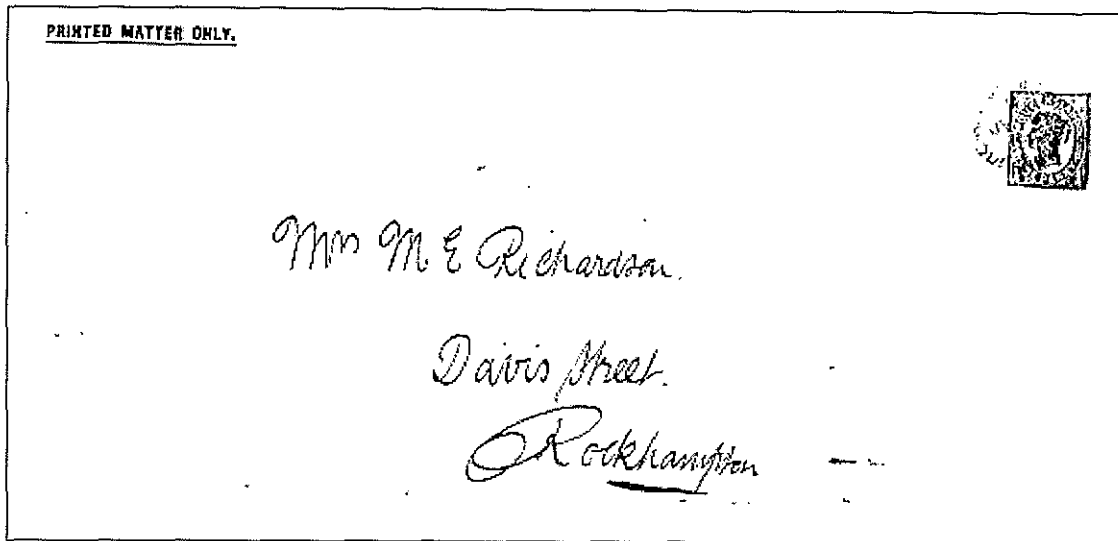 PRINTED MATTER ONLY.
Mrs M E Richardson.
Davis Street.
Rockhampton